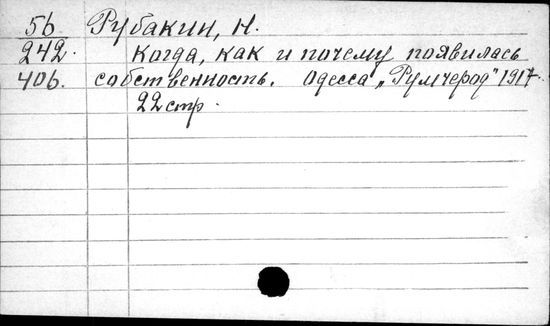 56 Рубакин, Н.
242. Когда, как и почему появилась
406. собственность. Одесса „Румчерод" 1917.
22 стр.